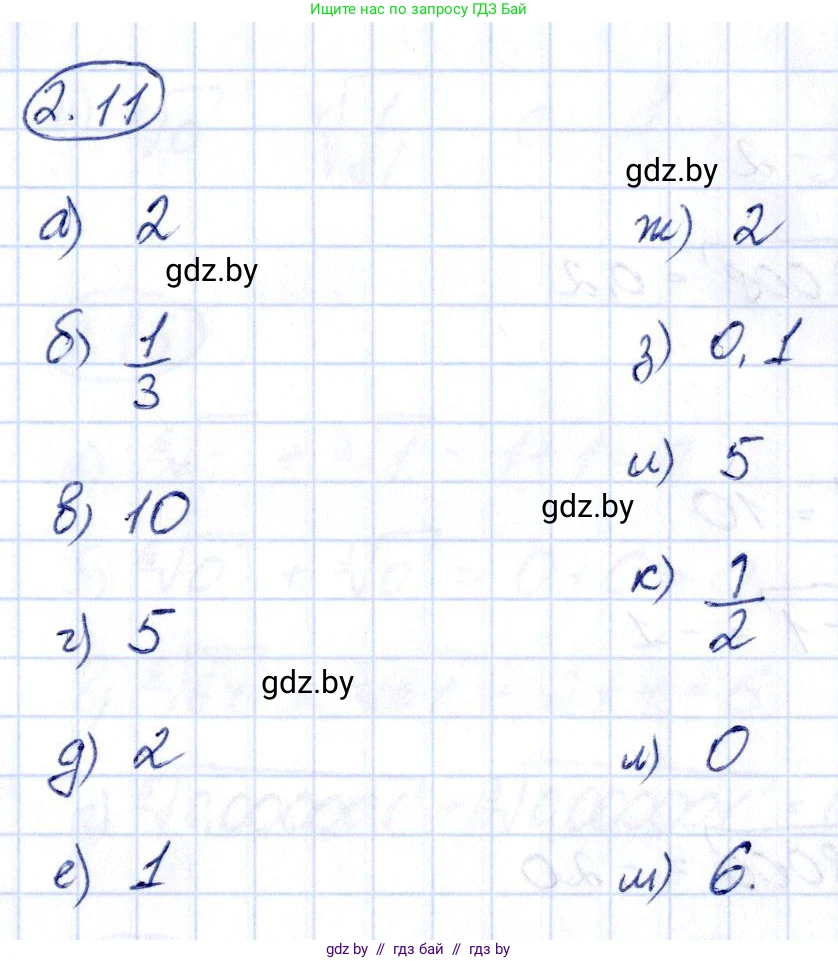 Ищите нас по запросу ГДЗ Бай
2.11
gdz.by
а) 2
ж) 2
gdz.by
б) 1/3
з) 0,1
и) 5
в) 10
gdz.by
к) 1/2
г) 5
gdz.by
д) 2
л) 0
е) 1
м) 6.
gdz by // гдз бай // гдз by